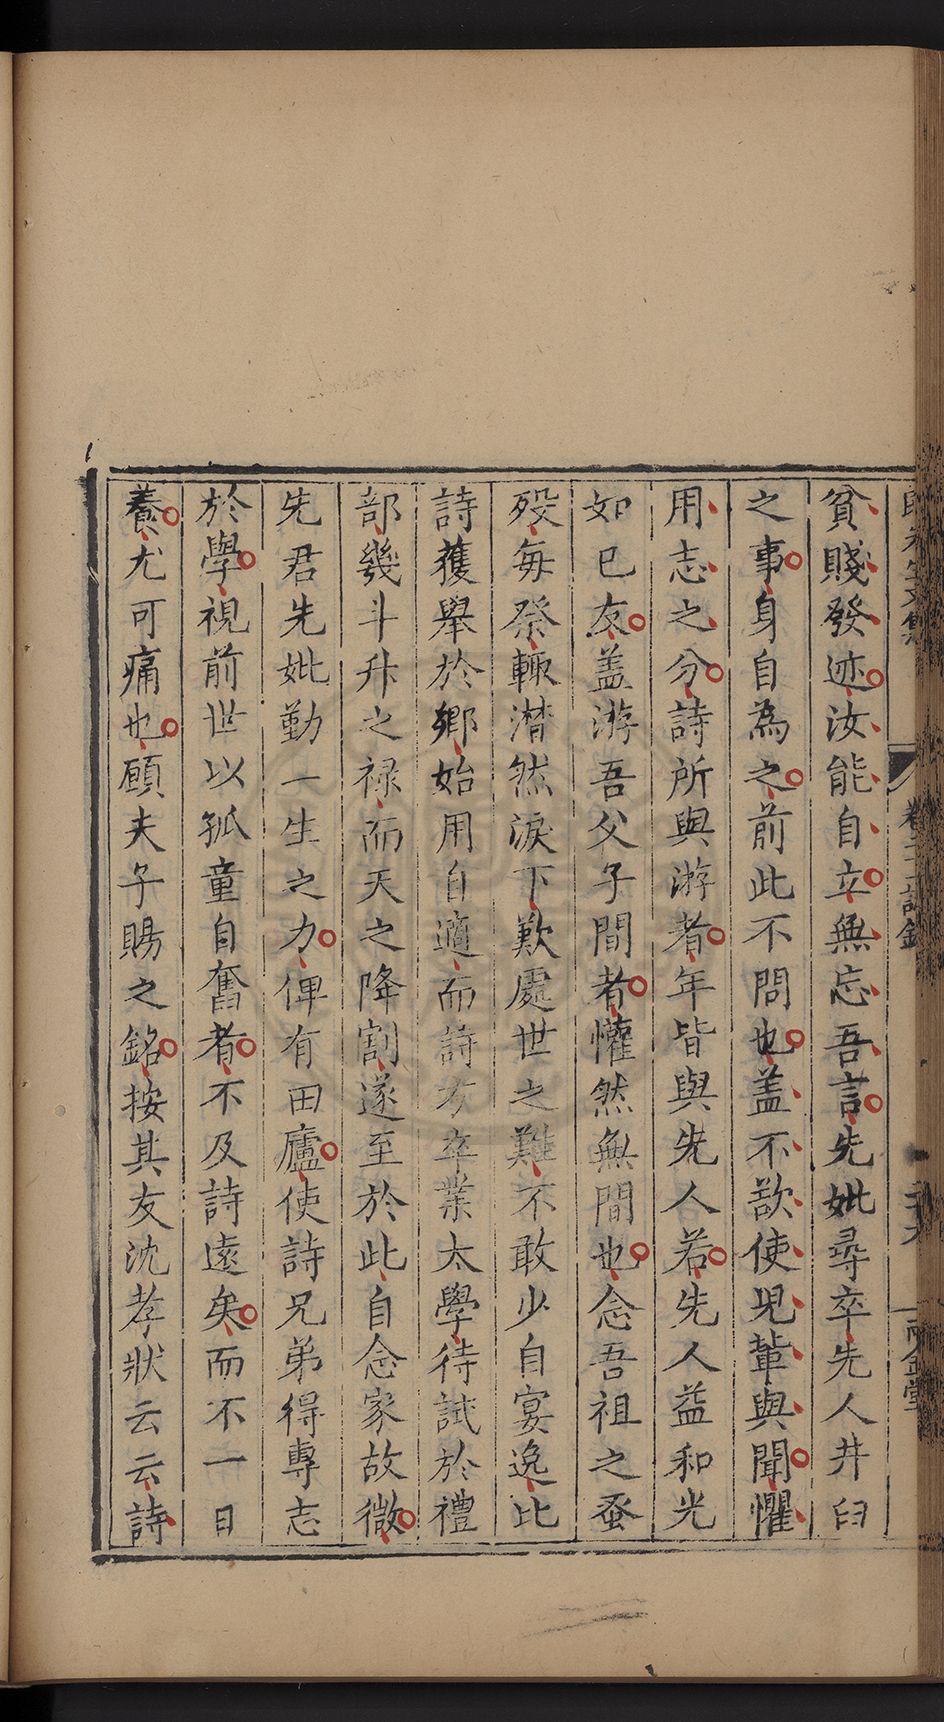 貧賤發迹汝能自立無忘吾言先妣尋卒先人井臼
之事身自為之前此不問也盖不欲使児輩與聞懼
用志之分詩所與游者年皆與先人若先人益和光
如已友盖游吾父子間者懽然無間也念吾祖之蚤
殁每祭輒潸然淚下歎處世之難不敢少自宴逸比
詩獲舉於鄉始用自適而詩方卒業太學待試於禮
部幾斗升之禄而天之降割遂至於此自念家故微
先君先妣勤一生之力俾有田廬使詩兄弟得專志
於學視前世以孤童自奮者不及詩遠矣而不一日
養尤可痛也願夫子賜之銘按其友沈孝狀云云詩